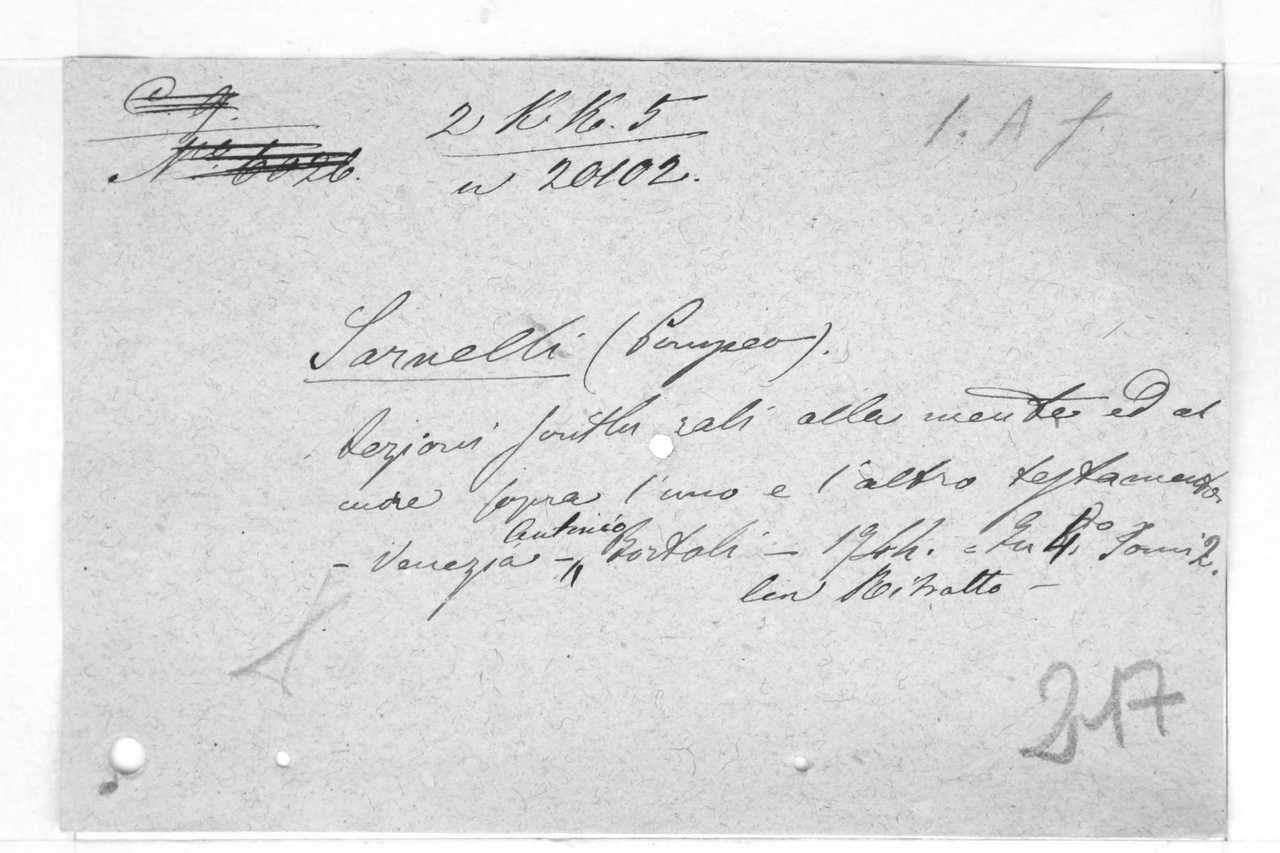 C. 9. 2 KK. 5 1. A f
No. 6026. n 20102.
Sarnelli (Pompeo).
Lezioni scritturali alla mente ed al
cuore sopra l'uno e l'altro testamento.
Antonio
- Venezia - „ Bortoli - 1744. = In 4to Tomi 2.
Con Ritratto -
217